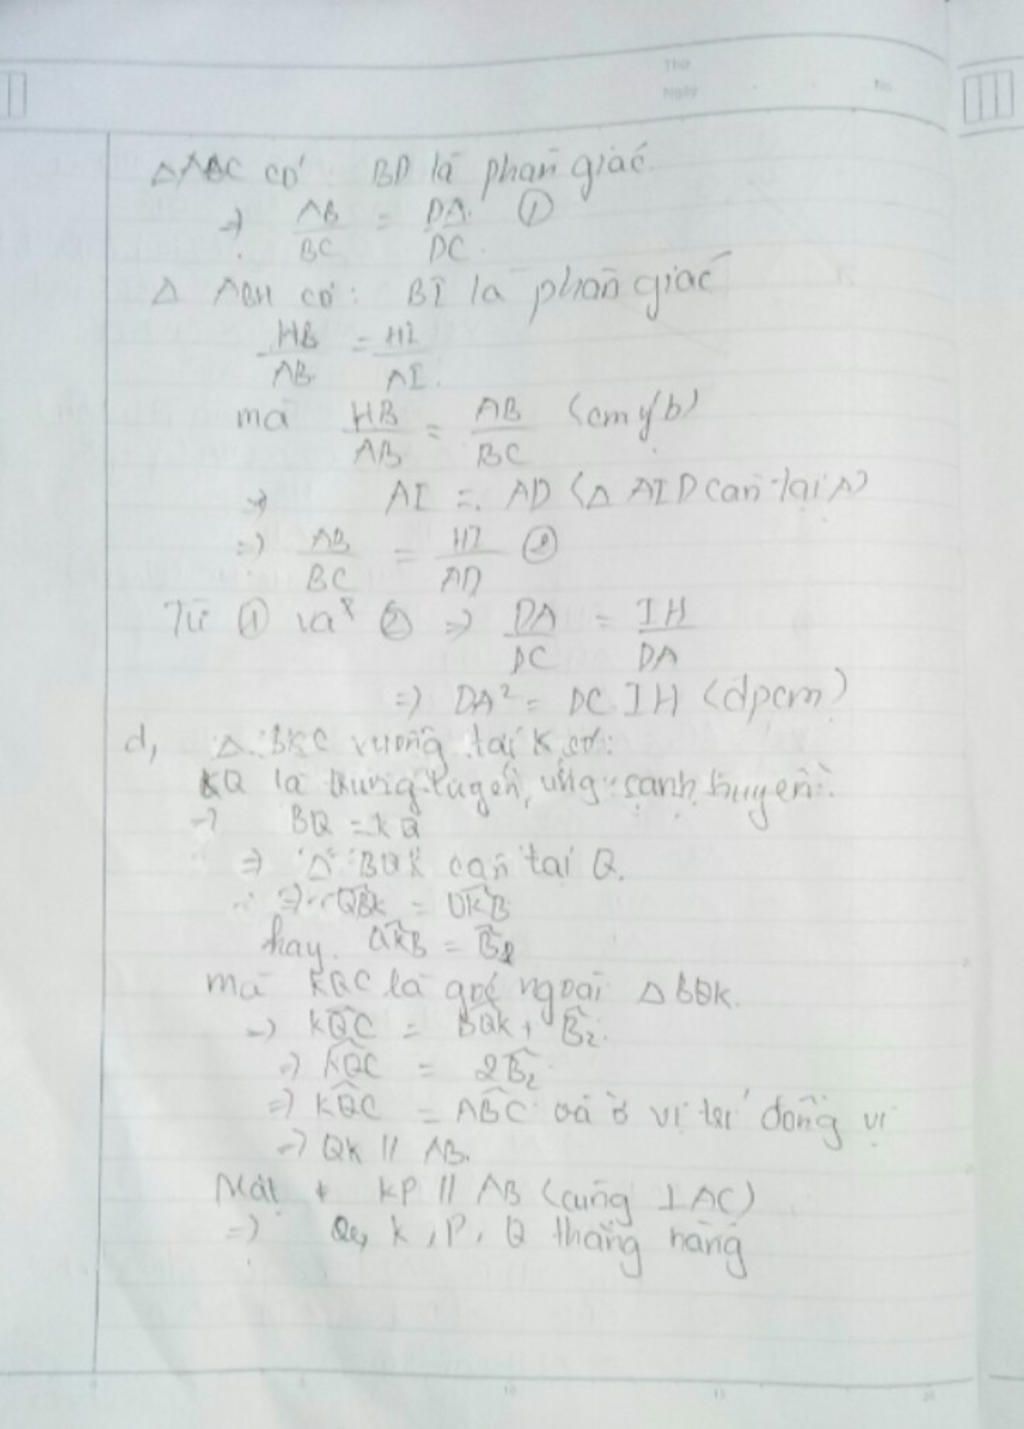 Thứ
Ngày No
ΔABC có: BD là phân giác
→ AB/BC = DA/DC ①
Δ ABH có: BI là phân giác
HB/AB = HI/AI.
mà HB/AB = AB/BC (cm ý b)
→ AI = AD (Δ AID cân tại A)
=> AB/BC = HI/AD ②
Từ ① và ② => DA/DC = IH/DA
=> DA² = DC.IH (đpcm)
d, Δ BKC vuông tại K có:
KQ là trung tuyến, ứng cạnh huyền
→ BQ = KQ
=> Δ BQK cân tại Q.
=> QBK = QKB
hay QKB = B₂
mà KQC là góc ngoài Δ BQK.
→ KQC = BQK + B₂.
→ KQC = 2B₂
=> KQC = ABC và ở vị trí đồng vị
→ QK // AB.
Mặt + KP // AB (cùng ⊥ AC)
=> K, P, Q thẳng hàng
10 15 20